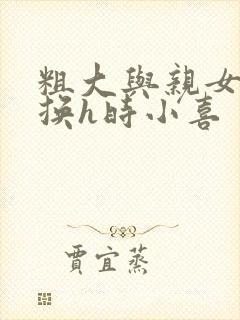 粗大與親女
換h時小喜
賈宜蒸